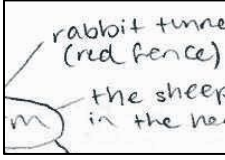 rabbit tunne
(red fence)
the sheep
in the he
m